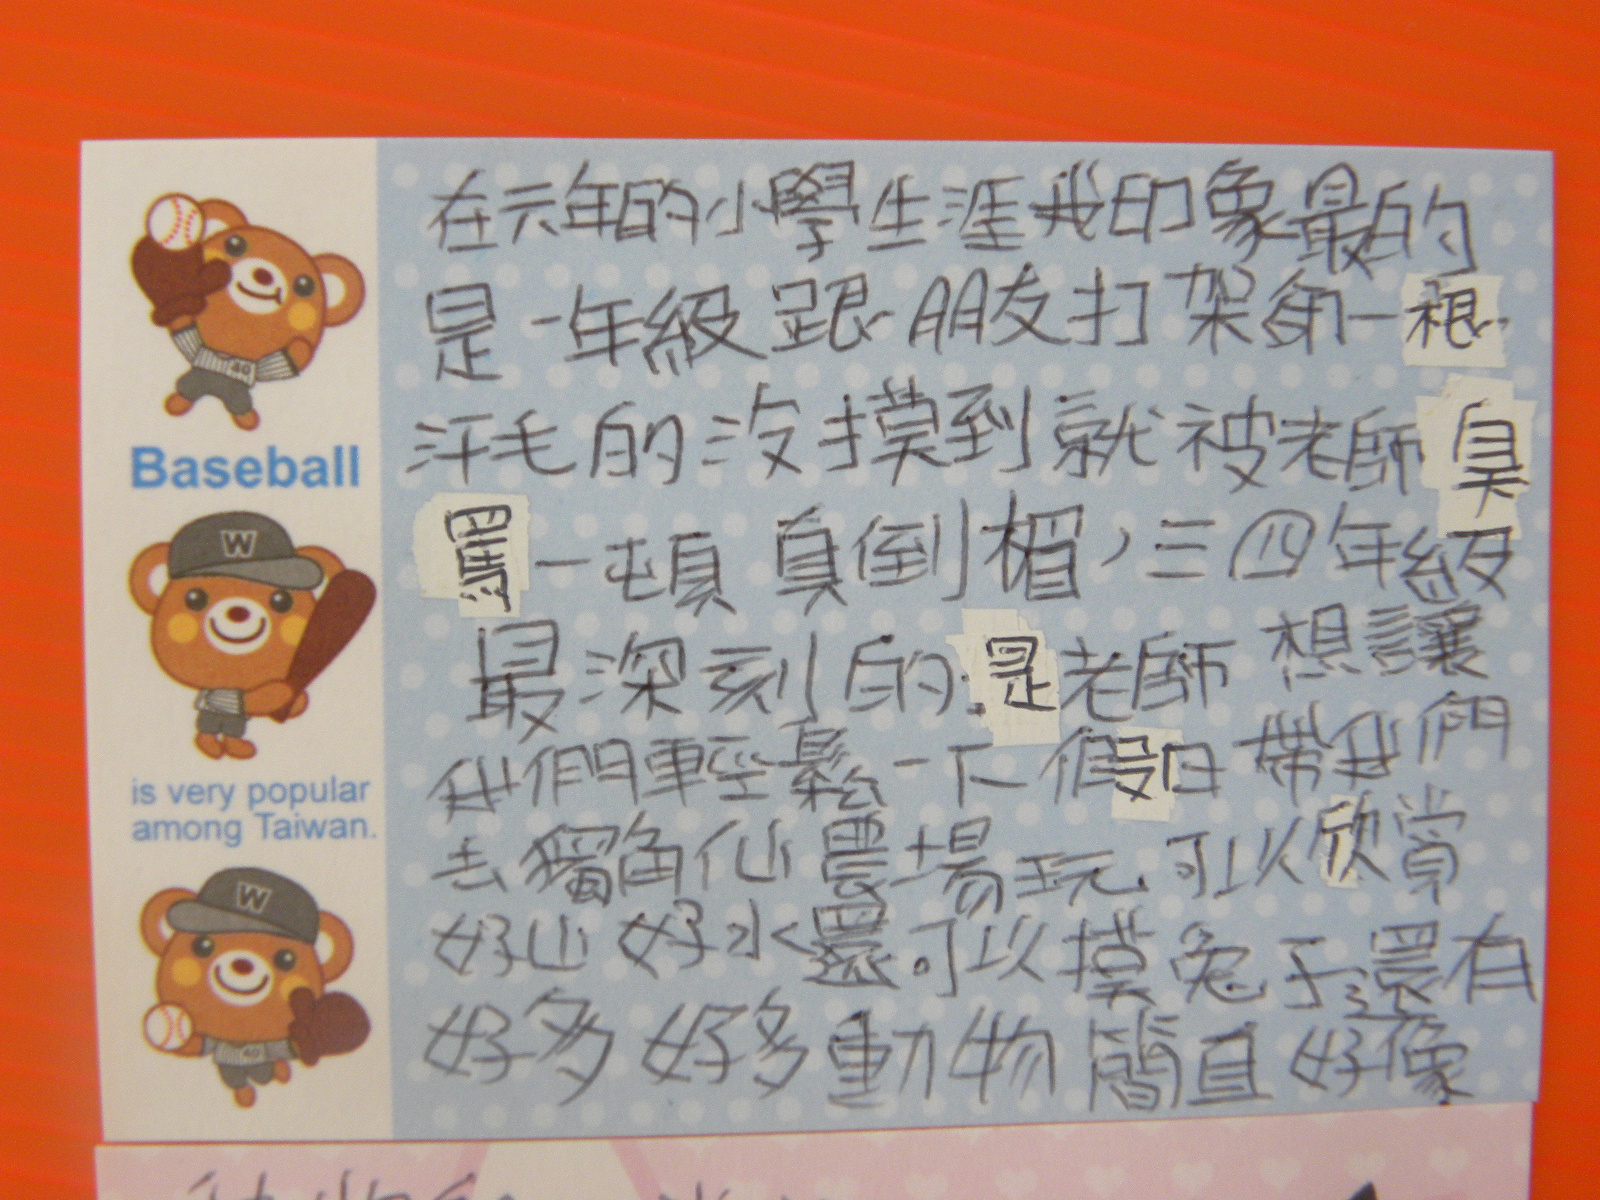 Baseball
is very popular
among Taiwan.
在六年的小學生涯我印象最的
是一年級跟朋友打架第一根
汗毛的沒摸到就被老師臭
罵一頓真倒楣，三四年級
最深刻的是老師想讓
我們輕鬆一下假日帶我們
去獨角仙農場玩可以欣賞
好山好水還可以摸兔子還有
好多好多動物簡直好像
W
W
40
40